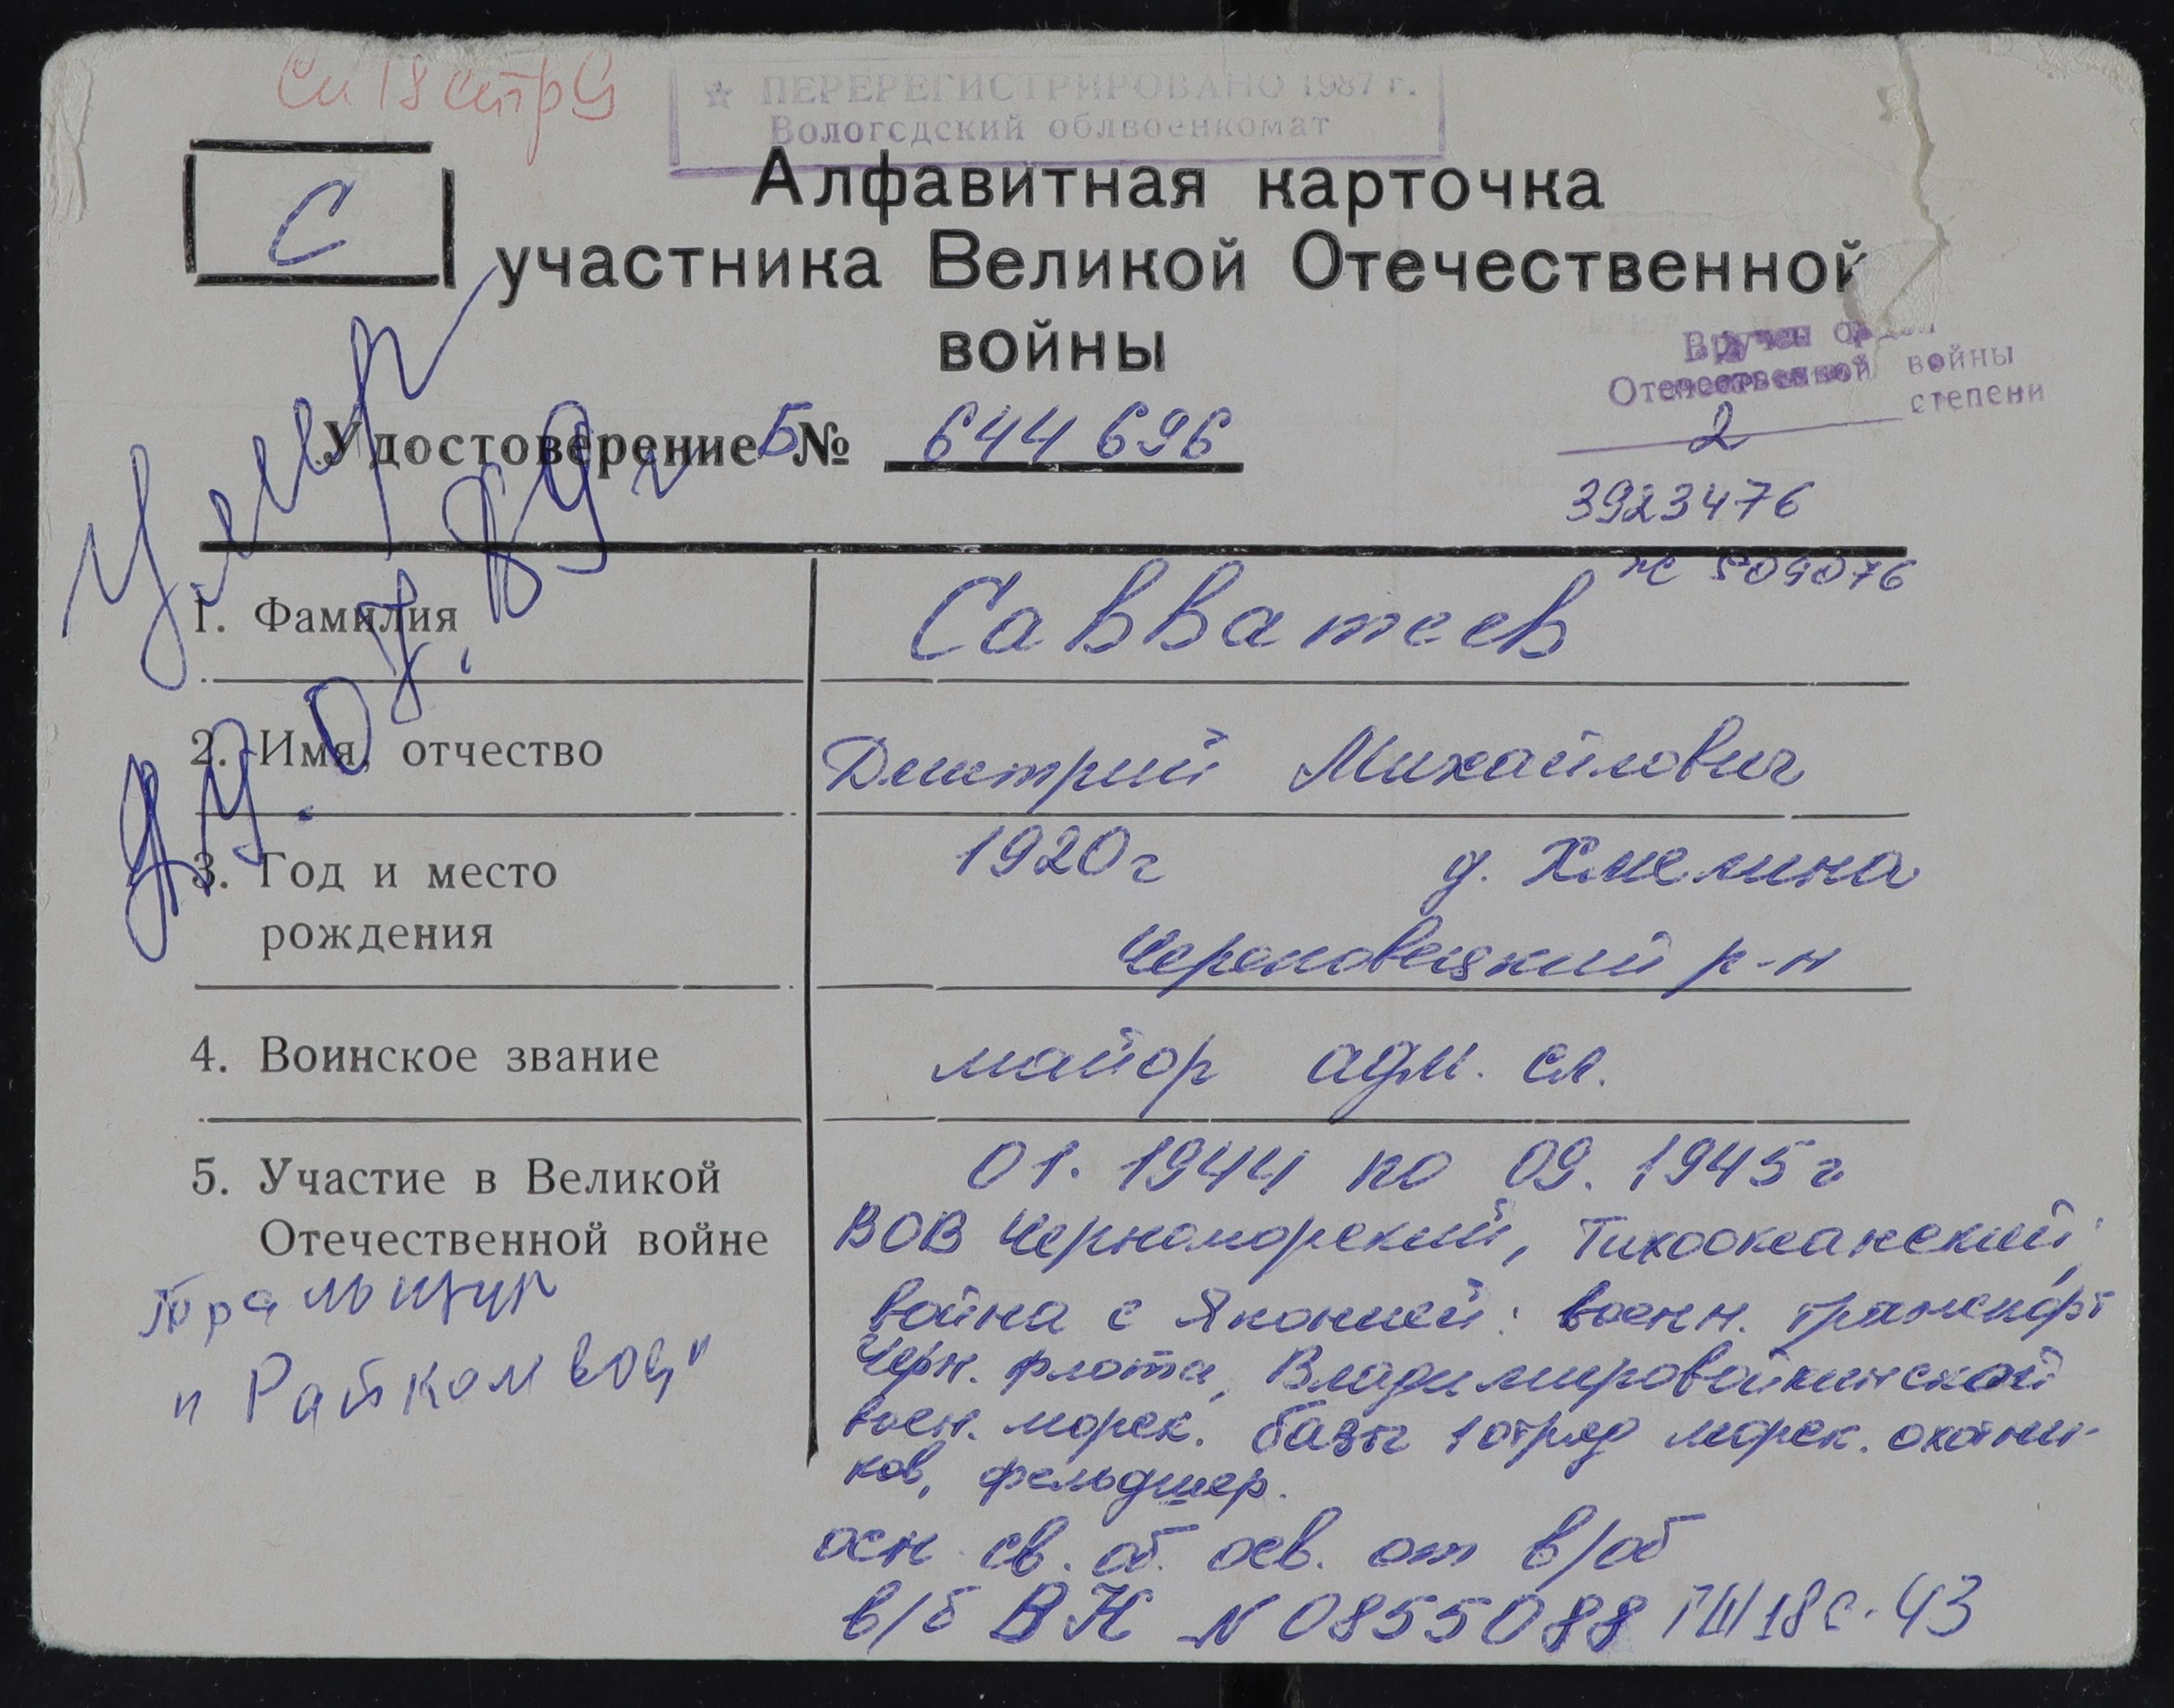 Сп 18 стр 9
☆ ПЕРЕРЕГИСТРИРОВАНО 1987 г.
Вологодский облвоенкомат
С
Алфавитная карточка
участника Великой Отечественной
войны
Вручен
Отечественной войны
2 степени
3923476
Удостоверение Б № 644 696
509076
умер
07. 89 г
1. Фамилия Савватеев
2. Имя, отчество Дмитрий Михайлович
3. Год и место 1920г д. Хмелина
рождения Череповецкий р-н
4. Воинское звание майор адм. сл.
5. Участие в Великой 01. 1944 по 09. 1945г
Отечественной войне ВОВ Черноморский, Тихоокеанский,
война с Японией: военн. транспорт
Черн. флота,
воен. морск. базы 1 отряд морск. охотни-
ков, фельдшер.
тральщик
"Райкомвод"
осн. св. об. осв. от в/об
в/б ВК N 0855088 ГШ 18 с. 43